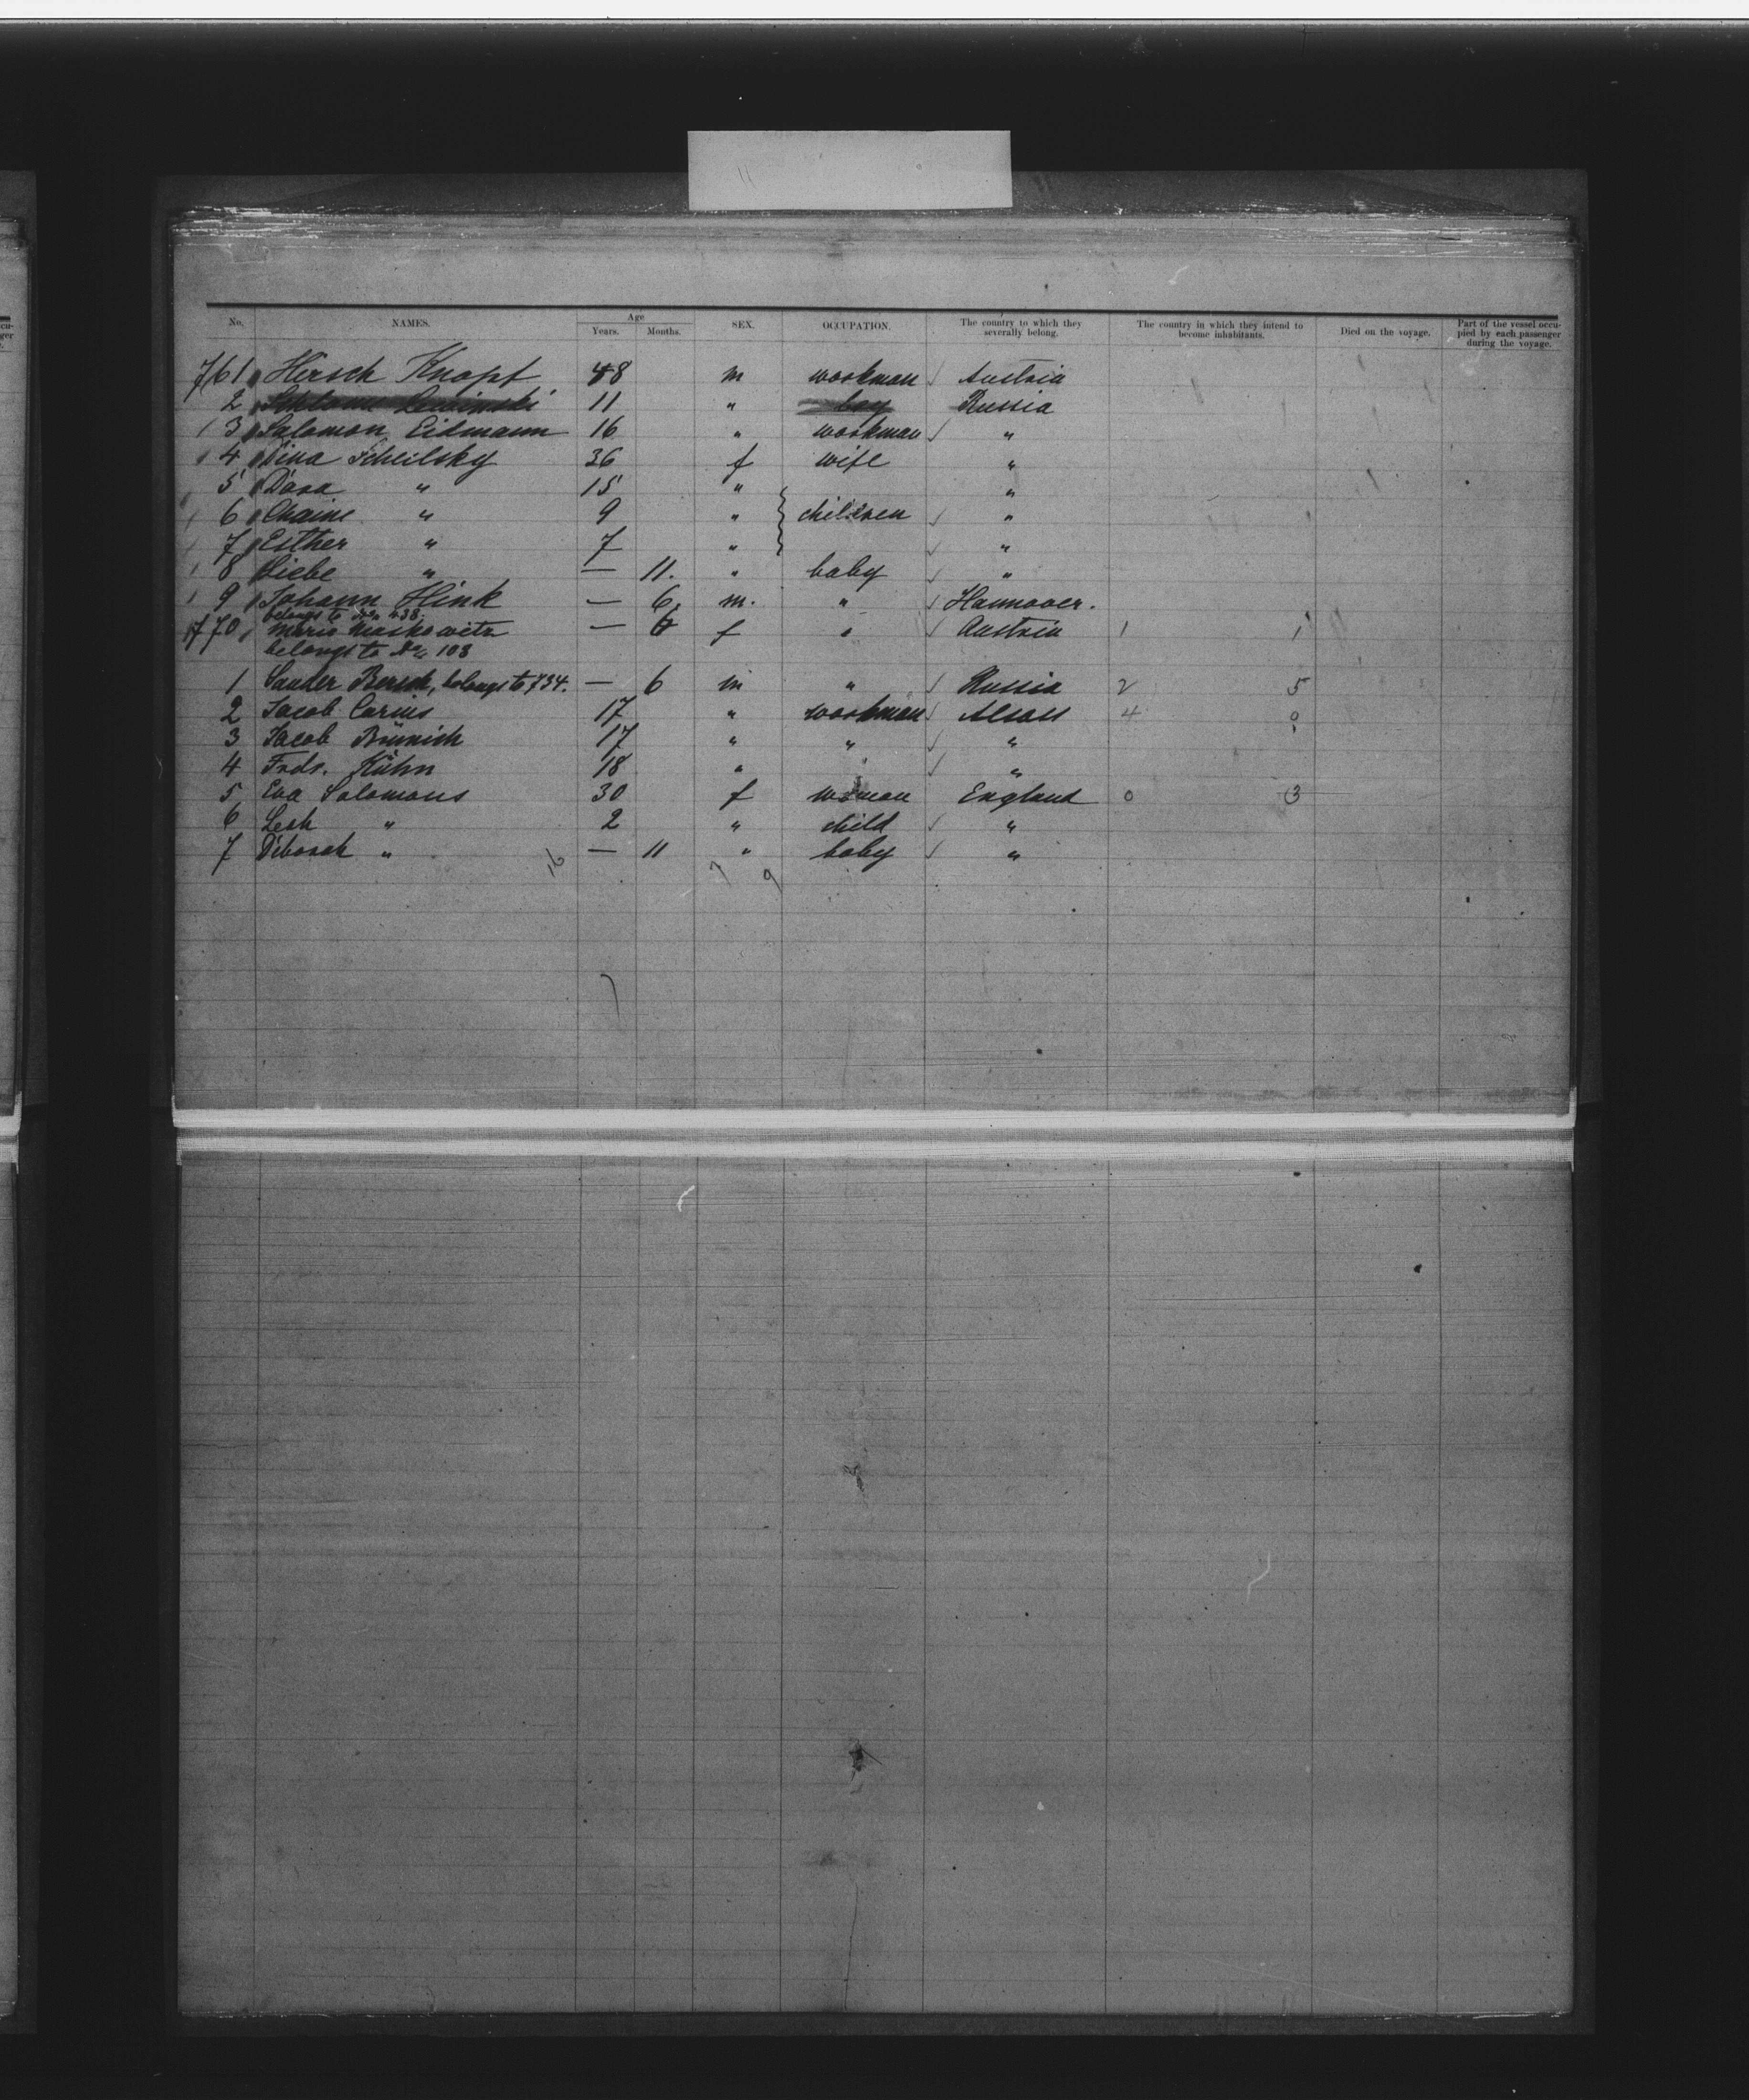 No. NAMES. Age Years. Months. SEX. OCCUPATION. The country to which they severally belong. The country in which they intend to become inhabitants. Died on the voyage. Part of the vessel occupied by each passenger during the voyage.
761 Hirsch Knopf 48 m workman Austria
2 11 " boy Russia
3 Salomon Eidmann 16 " workman "
4 Dina Scheilsky 36 f wife "
5 Dora " 15 " "
6 Chaine " 9 " children "
7 Esther " 7 " "
8 Liebe " — 11. " baby "
9 Johann Hink — 6. m. " Hannover.
belongs to No 438.
770 Marie Moskowitz — 6 f " Austria 1 1
belongs to No 103
1 Sander Bersch, belongs to 734. — 6 m " Russia 2 5
2 Jacob Carius 17 " workman Alsass 4 0
3 Jacob Brünich 17 " " "
4 Fedr. Kühn 18 " "
5 Eva Salomons 30 f woman England 0 3
6 Leah " 2 " child "
7 Deborah " — 11 " baby "
16 7 9